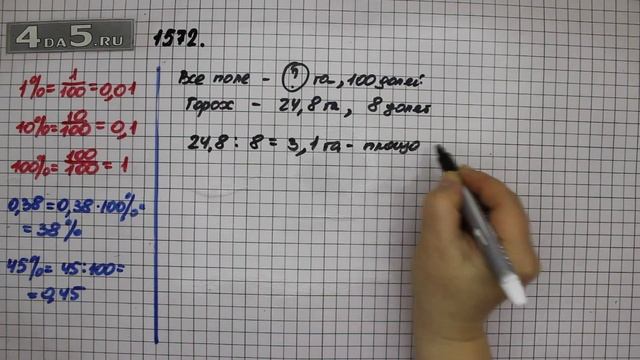 4DA5.RU
1572.
1% = 1/100 = 0,01
10% = 10/100 = 0,1
100% = 100/100 = 1
0,38 = 0,38 · 100% =
= 38%
45% = 45 : 100 =
= 0,45
Все поле - ? га, 100 долей
Горох - 24,8 га, 8 долей
24,8 : 8 = 3,1 га - площа